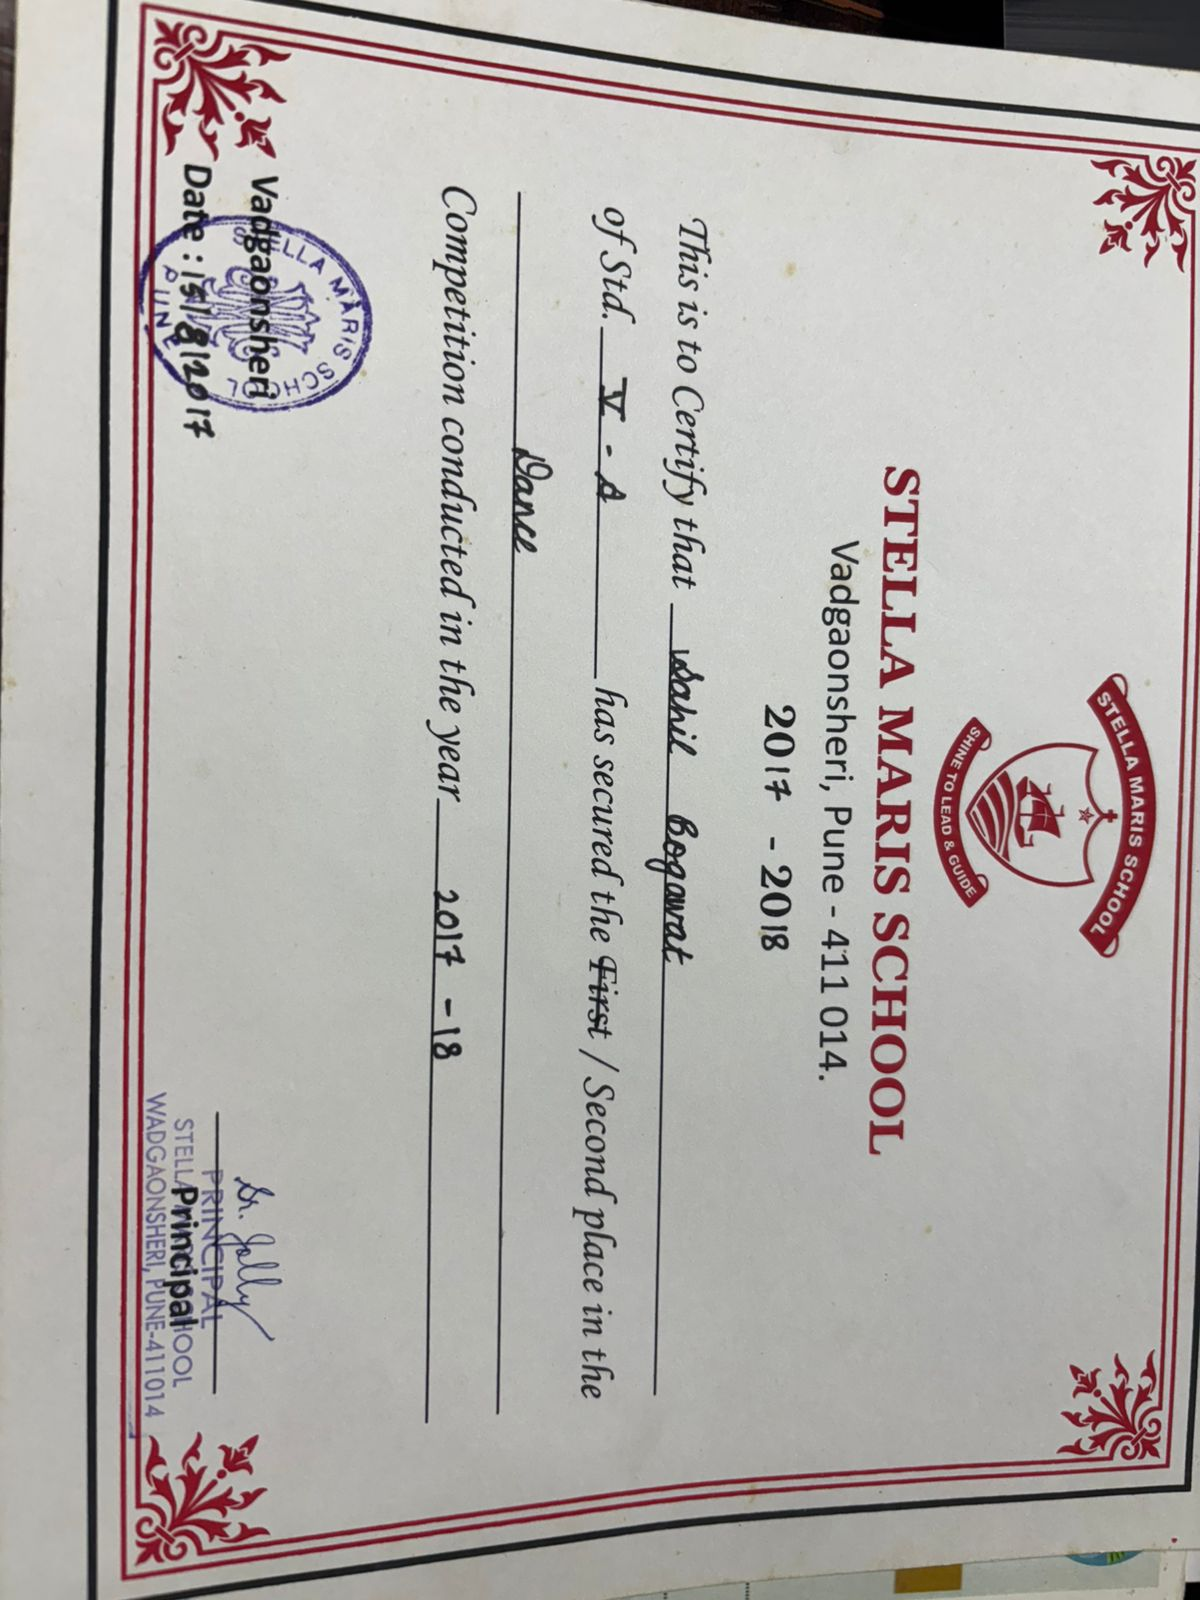 STELLA MARIS SCHOOL
SHINE TO LEAD & GUIDE
STELLA MARIS SCHOOL
Vadgaonsheri, Pune - 411 014.
2017 - 2018
This is to Certify that Sahil Bogawat
of Std. V - A has secured the First / Second place in the
Dance
Competition conducted in the year 2017 - 18
Vadgaonsheri
Date : 15/8/2017
STELLA MARIS SCHOOL
PUNE
Sr. Jolly
PRINCIPAL
Principal
STELLA MARIS SCHOOL
WADGAONSHERI, PUNE-411014